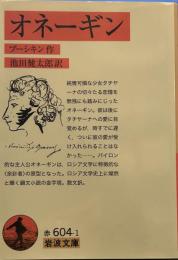 オネーギン
プーシキン 作
池田健太郎 訳
純情可憐な少女タチヤ
ーナの切々たる恋情を
無残にも踏みにじった
オネーギン。彼は後に
タチヤーナへの愛に目
覚めるが、時すでに遅
く、ついに彼の愛が受
け入れられることはな
かった――。バイロン
的な主人公オネーギンは、ロシア文学に特徴的な
〈余計者〉の原型となった。ロシア文学史上に燦然
と輝く韻文小説の金字塔。散文訳。
赤 604-1
岩波文庫